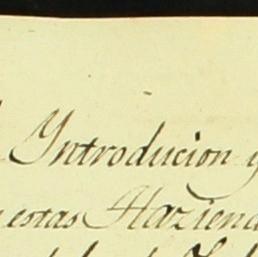 Yntroducion y
estas Haziend